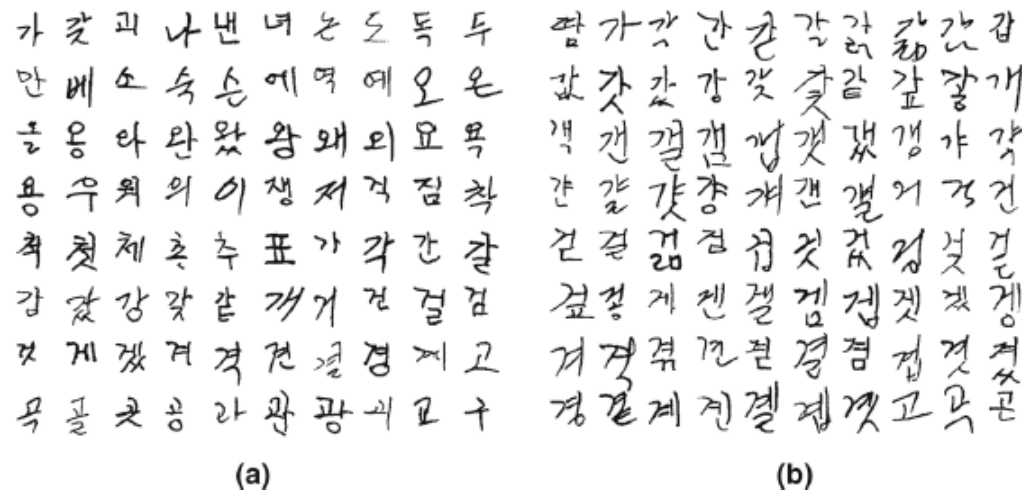 가 갖 괴 나 낸 녀 는 도 독 두
만 베 소 숙 슨 에 역 예 오 온
올 옹 와 완 왔 왕 왜 외 요 욕
용 우 워 의 이 쟁 저 적 짐 착
책 첫 체 촌 추 표 가 각 간 갈
감 값 강 갖 같 개 거 건 걸 검
것 게 겠 겨 격 견 결 경 계 고
곡 골 곳 공 과 관 광 괴 교 구
(a)
땀 가 각 간 갇 갈 갉 갊 감 갑
값 갓 갔 강 갖 갗 같 갚 갛 개
객 갠 갤 갬 갭 갯 갰 갱 갸 갹
갼 걀 걋 걍 걔 걘 걜 거 걱 건
걷 걸 걺 검 겁 것 겄 겅 겆 겉
겊 겋 게 겐 겔 겜 겝 겟 겠 겡
겨 격 겪 견 겯 결 겸 겹 겻 겼
경 곁 계 곈 곌 곕 곗 고 곡 곤
(b)